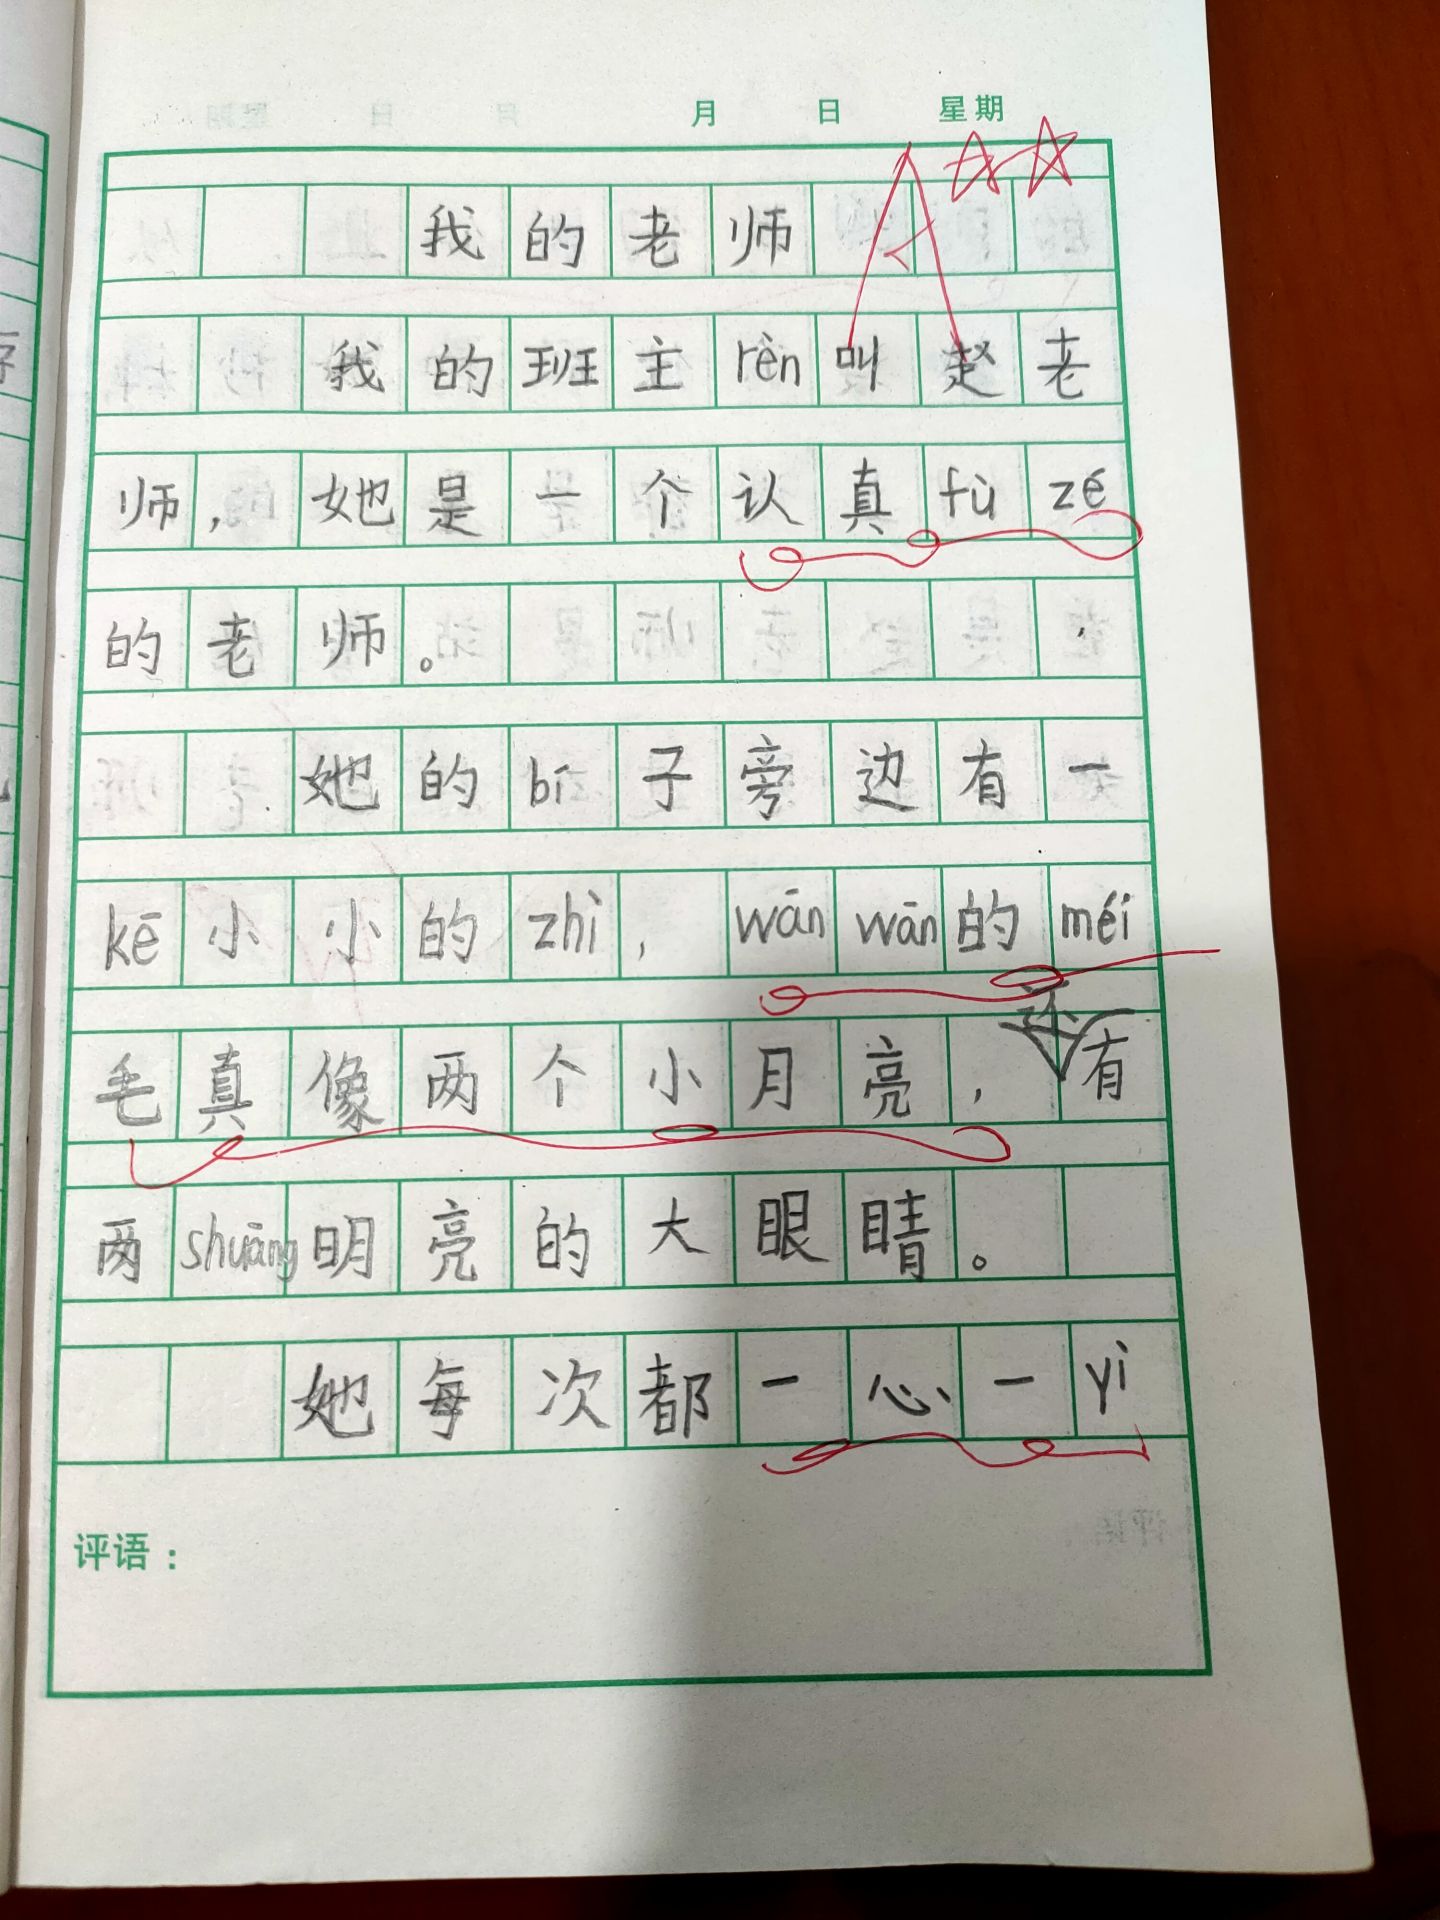 月 日 星期
我的老师
我的班主rèn叫赵老
师，她是一个认真fù zé
的老师。
她的bí子旁边有一
kē小小的zhì，wān wān的méi
毛真像两个小月亮，还有
两shuāng明亮的大眼睛。
她每次都一心一yì
评语：